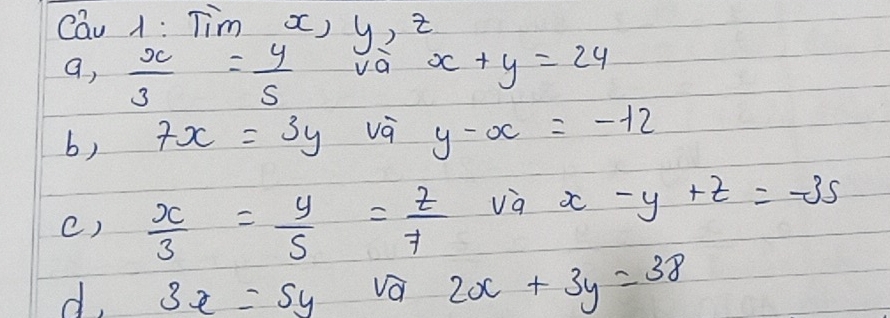 Câu 1: Tìm x, y, z
a, x/3 = y/5 và x + y = 24
b, 7x = 3y và y - x = -12
c, x/3 = y/5 = z/7 và x - y + z = -35
d, 3x = 5y và 2x + 3y = 38